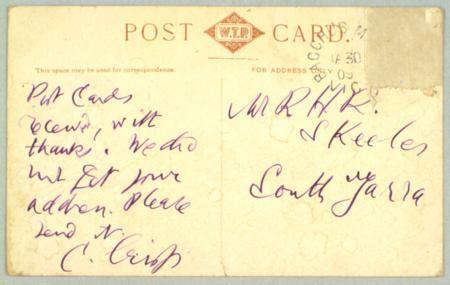 POST CARD.
W.T.P.
This space may be used for correspondence.
FOR ADDRESS ONLY
30
09
Post Cards
receivd, with
thanks. We did
not get your
address. Please
send it.
C. Crisp
Mr R H K.
Skeeles
South Yarra